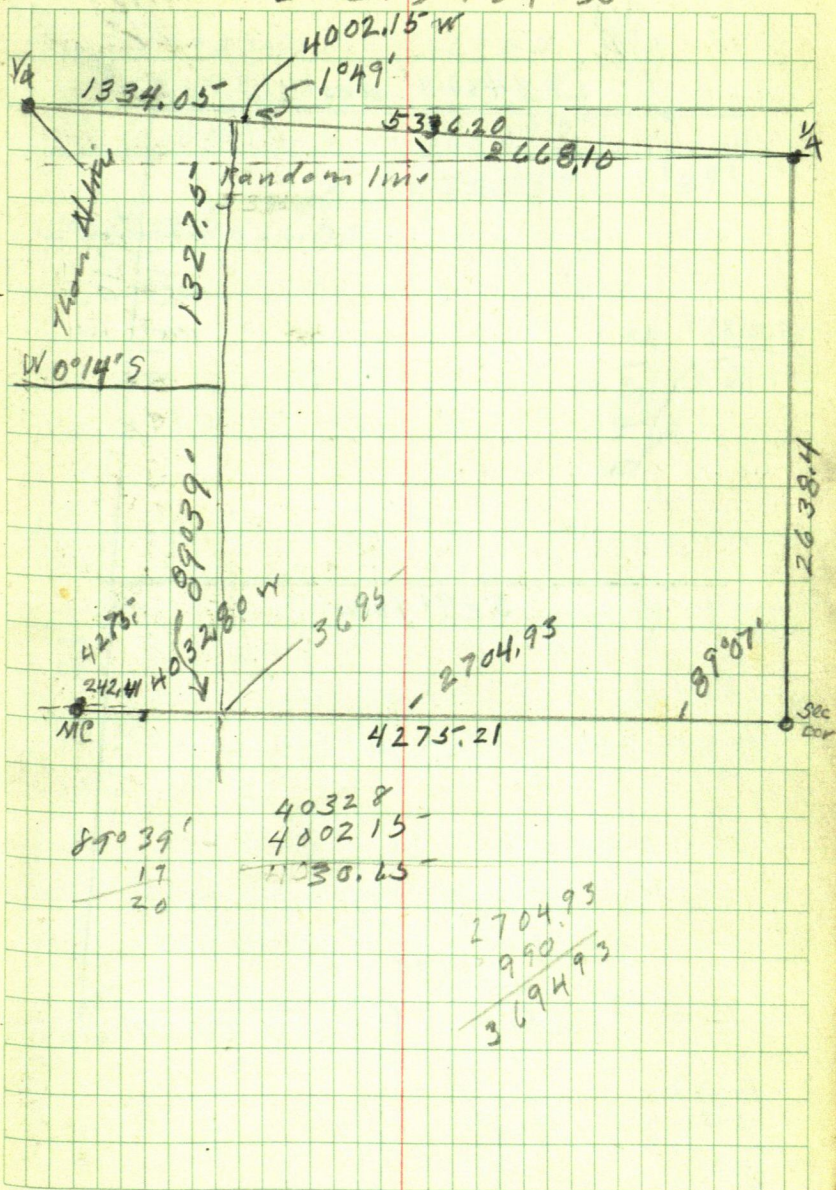 4002.15 W
1°49'
1/4
1334.05
5336.20
2668.10
1/4
Random line
1327.5
W 0°14' S
89°39'
2638.4
4275
4032.80 W
3695
2704.93
89°07'
242.41
MC
4275.21
Sec
cor
89°39'
17
20
40328
400215
30.65
2704.93
990
369493